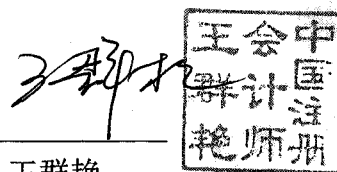 王群艳
中国注册
会计师
王群艳
王群艳